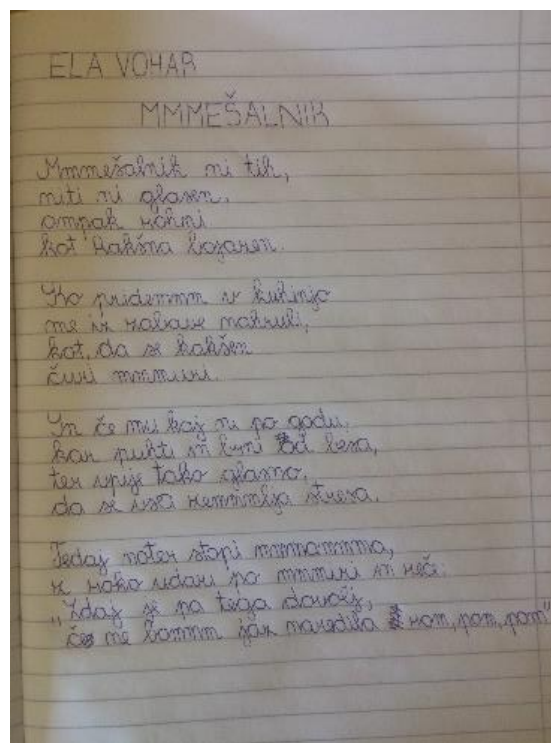 ELA VOHAR
MMMEŠALNIK
Mmmešalnik ni tih,
niti ni glasen,
ampak rohni
kot kakšna
Ko pridemmm v kuhinjo
me iz zabave nahruli,
kot, da se kakšen
čuri mmmuri.
In če mu kaj ni po godu,
kar puhti in brni od besa,
ter vpije tako glasno,
da se vsa zemmmlja stresa.
Tedaj noter stopi mmmammma,
z roko udari po mmmizi in reče:
"Zdaj je pa tega dovolj,
če ne bommm jaz naredila rom, pom, pom"